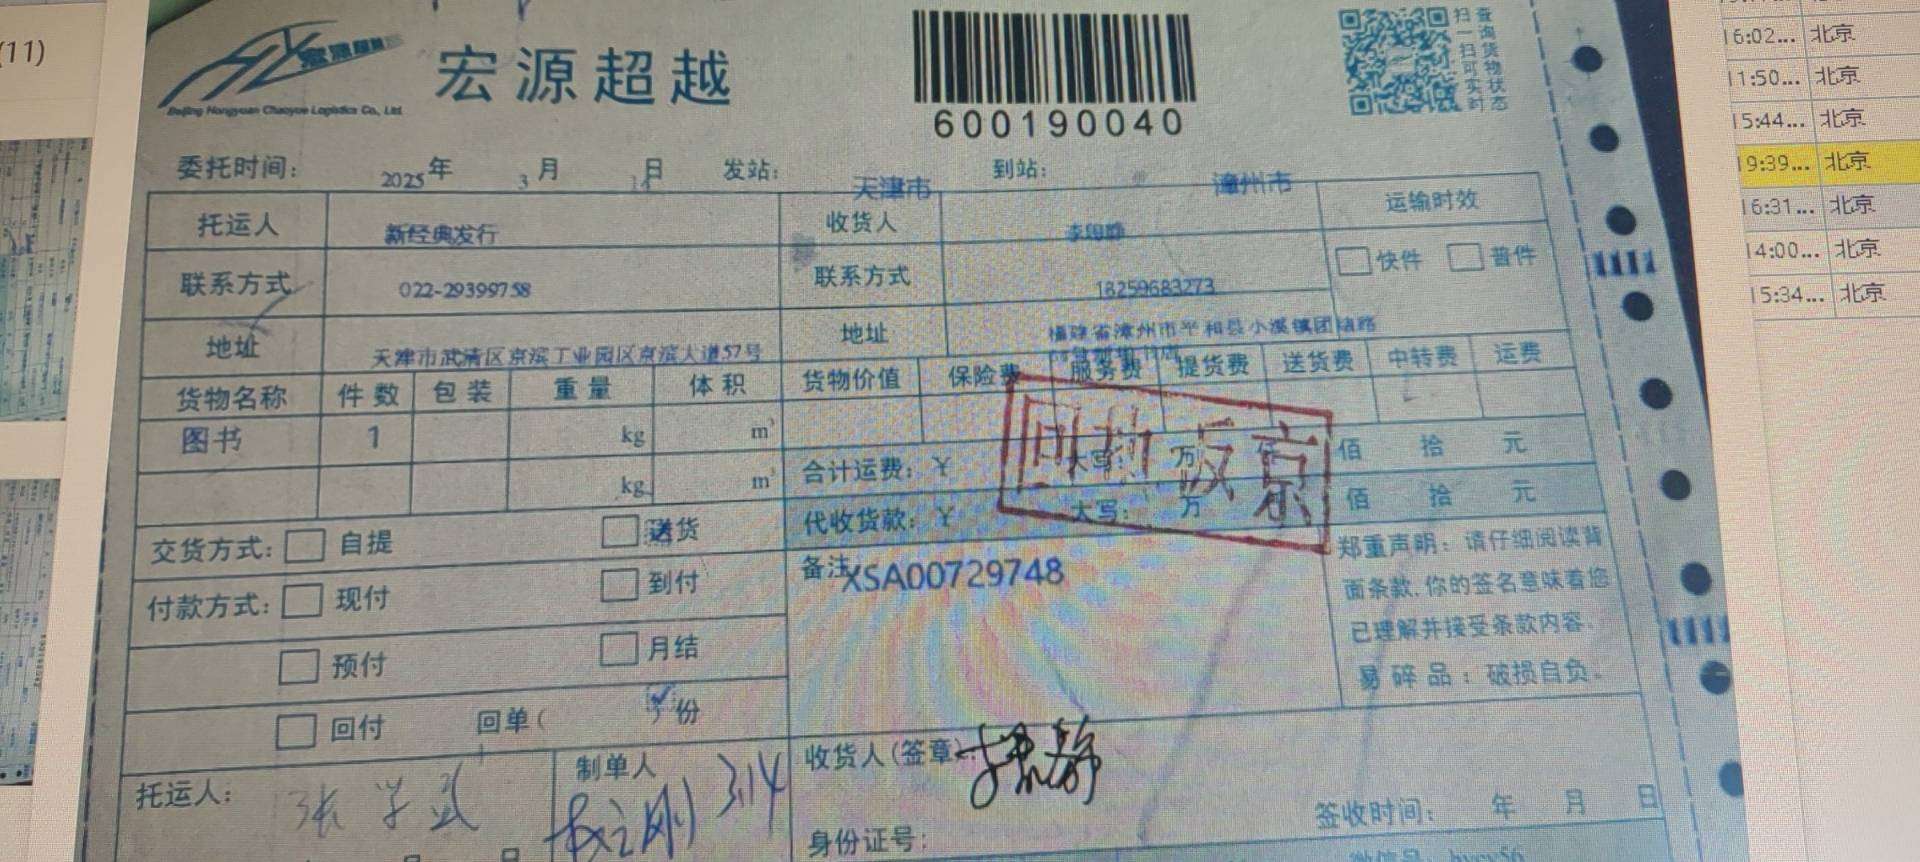 (11)
宏源超越
Beijing Hongyuan Chaoyue Logistics Co., Ltd.
600190040
查询货物状态
扫一扫可实时
委托时间: 2025年 3月 14日 发站: 天津市 到站: 漳州市
托运人 新经典发行 收货人 运输时效
联系方式 022-29399758 联系方式 18259683273 快件 普件
地址 天津市武清区京滨工业园区京滨大道57号 地址 福建省漳州市平和县小溪镇团结路
货物名称 件数 包装 重量 体积 货物价值 保险费 服务费 提货费 送货费 中转费 运费
图书 1 kg m³
合计运费: ¥ 大写: 万 佰 拾 元
kg m³
代收货款: ¥ 大写: 万 佰 拾 元
京返
交货方式: 自提 送货
付款方式: 现付 到付
预付 月结
回付 回单( 份
备注 XSA00729748
郑重声明: 请仔细阅读背
面条款,你的签名意味着您
已理解并接受条款内容.
易碎品: 破损自负.
托运人:
制单人 3.14
收货人(签章)
身份证号:
签收时间: 年 月 日
16:02... 北京
11:50... 北京
15:44... 北京
19:39... 北京
16:31... 北京
14:00... 北京
15:34... 北京